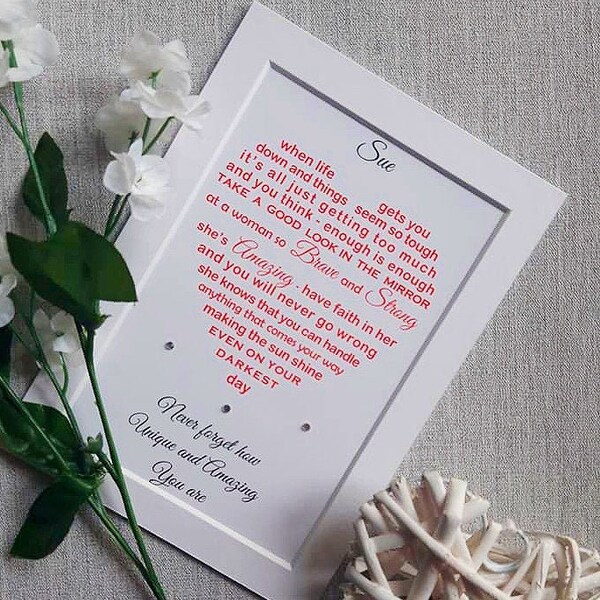 Sue
when life gets you
down and things seem so tough
it's all just getting too much
and you think - enough is enough
TAKE A GOOD LOOK IN THE MIRROR
at a woman so Brave and Strong
she's Amazing - have faith in her
and you will never go wrong
she knows that you can handle
anything that comes your way
making the sun shine
EVEN ON YOUR
DARKEST
day
Never forget how
Unique and Amazing
You are